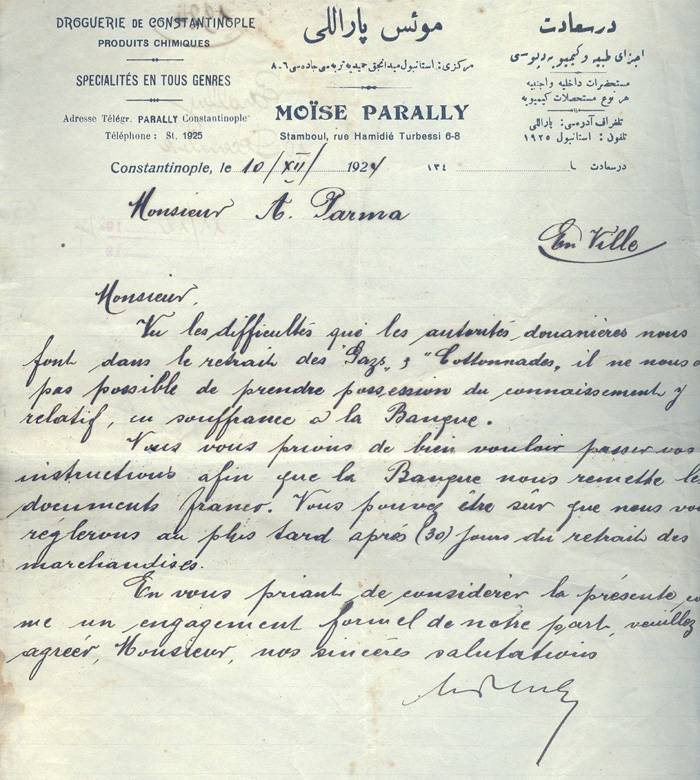 DROGUERIE DE CONSTANTINOPLE
PRODUITS CHIMIQUES
SPECIALITÉS EN TOUS GENRES
Adresse Télégr. PARALLY Constantinople
Téléphone : St. 1925
موئس پاراللی
مرکزی : استانبول میدانجق حمیدیه تربه‌سی جاده‌سی ٦-٨
MOÏSE PARALLY
Stamboul, rue Hamidié Turbessi 6-8
درسعادت
اجزای طبیه و کیمیویه دپوسی
مستحضرات داخلیه واجنبیه
هر نوع مستحصلات کیمیویه
تلغراف آدرسی : پاراللی
تلفون : استانبول ١٩٢٥
Constantinople, le 10/XII/ 1924
١٣٤ درسعادت
Monsieur A. Parma
En Ville
Monsieur,
Vu les difficultés que les autorités douanières nous
font dans le retrait des "Gazs" & "Cottonnades", il ne nous
pas possible de prendre possession du connaissement y
relatif, en souffrance à la Banque.
Nous vous prions de bien vouloir passer vos
instructions afin que la Banque nous remette le
documents franco. Vous pouvez être sûr que nous vou
réglerons au plus tard après (30) jours du retrait des
marchandises.
En vous priant de considérer la présente co
me un engagement formel de notre part, veuillez
agréer, Monsieur, nos sincères salutations